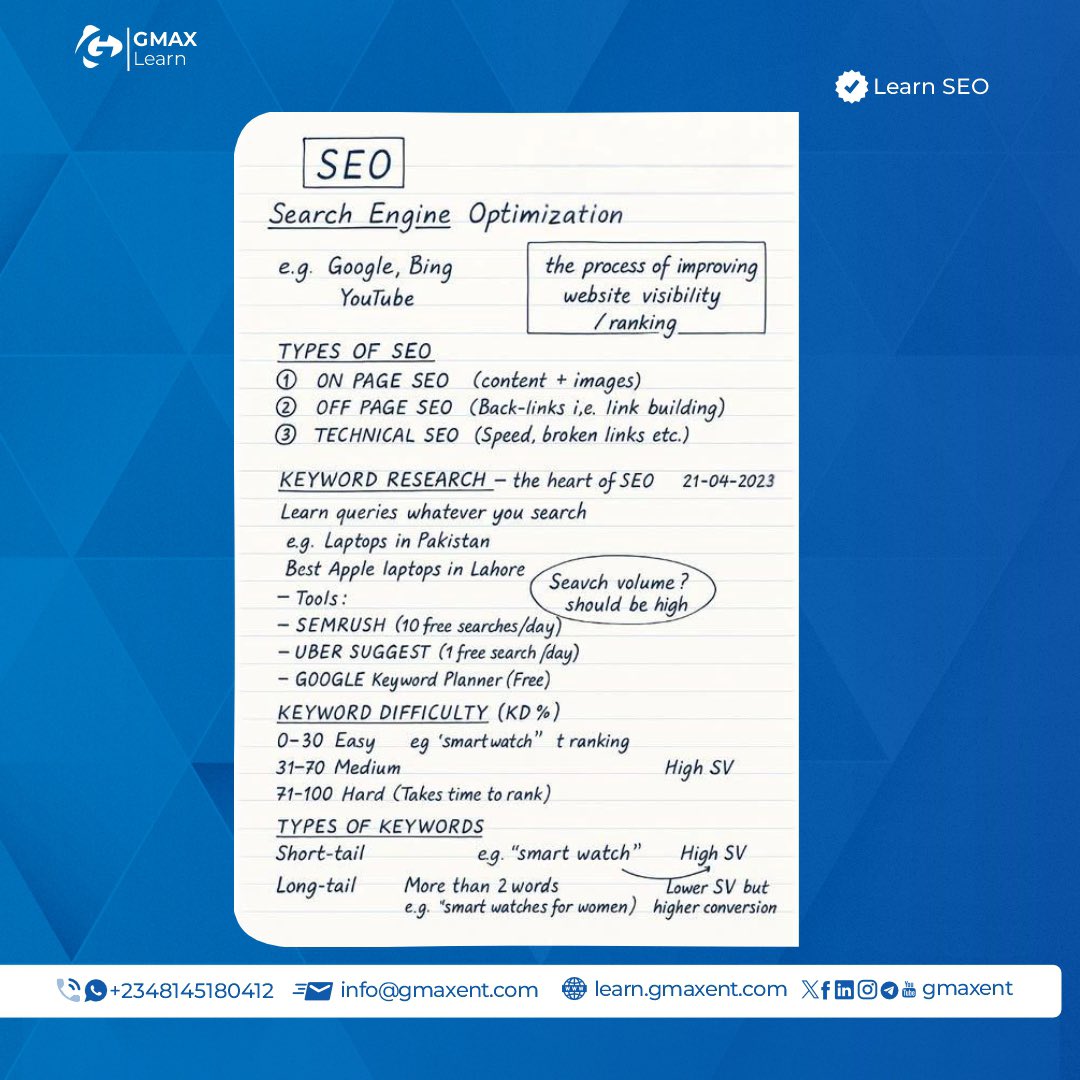 GMAX
Learn
Learn SEO
SEO
Search Engine Optimization
e.g. Google, Bing
YouTube
the process of improving
website visibility
/ ranking
TYPES OF SEO
① ON PAGE SEO (content + images)
② OFF PAGE SEO (Back-links i,e. link building)
③ TECHNICAL SEO (Speed, broken links etc.)
KEYWORD RESEARCH – the heart of SEO 21-04-2023
Learn queries whatever you search
e.g. Laptops in Pakistan
Best Apple laptops in Lahore
Seavch volume?
should be high
– Tools:
– SEMRUSH (10 free searches/day)
– UBER SUGGEST (1 free search/day)
– GOOGLE Keyword Planner (Free)
KEYWORD DIFFICULTY (KD%)
0–30 Easy eg ‘smartwatch” t ranking
31–70 Medium High SV
71–100 Hard (Takes time to rank)
TYPES OF KEYWORDS
Short-tail e.g. “smart watch” High SV
Long-tail More than 2 words Lower SV but
e.g. “smart watches for women) higher conversion
+2348145180412 info@gmaxent.com learn.gmaxent.com gmaxent